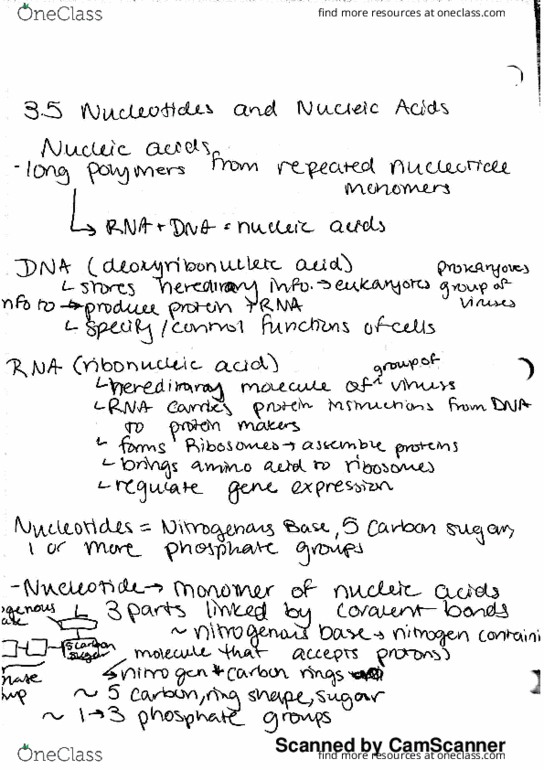 OneClass
find more resources at oneclass.com
3.5 Nucleotides and Nucleic Acids
Nucleic acids
- long polymers from repeated nucleotide
monomers
↳ RNA + DNA = nucleic acids
DNA (deoxyribonucleic acid)
prokaryotes
↳ stores hereditary info. → eukaryotes group of
viruses
nfo to → produce protein + RNA
↳ specify / control functions of cells
RNA (ribonucleic acid)
group of
↳ hereditary molecule of ^ viruses
↳ RNA carries protein instructions from DNA
to protein makers
↳ forms Ribosomes → assemble proteins
↳ brings amino acid to ribosomes
↳ regulate gene expression
Nucleotides = Nitrogenous Base, 5 Carbon sugar,
1 or more phosphate groups
- Nucleotide → monomer of nucleic acids
3 parts linked by covalent bonds
ogenous
~ nitrogenous base → nitrogen containi
5 carbon
sugar
molecule that accepts protons
↳ nitrogen + carbon rings
~ 5 carbon, ring shape, sugar
~ 1 → 3 phosphate groups
Scanned by CamScanner
OneClass
find more resources at oneclass.com